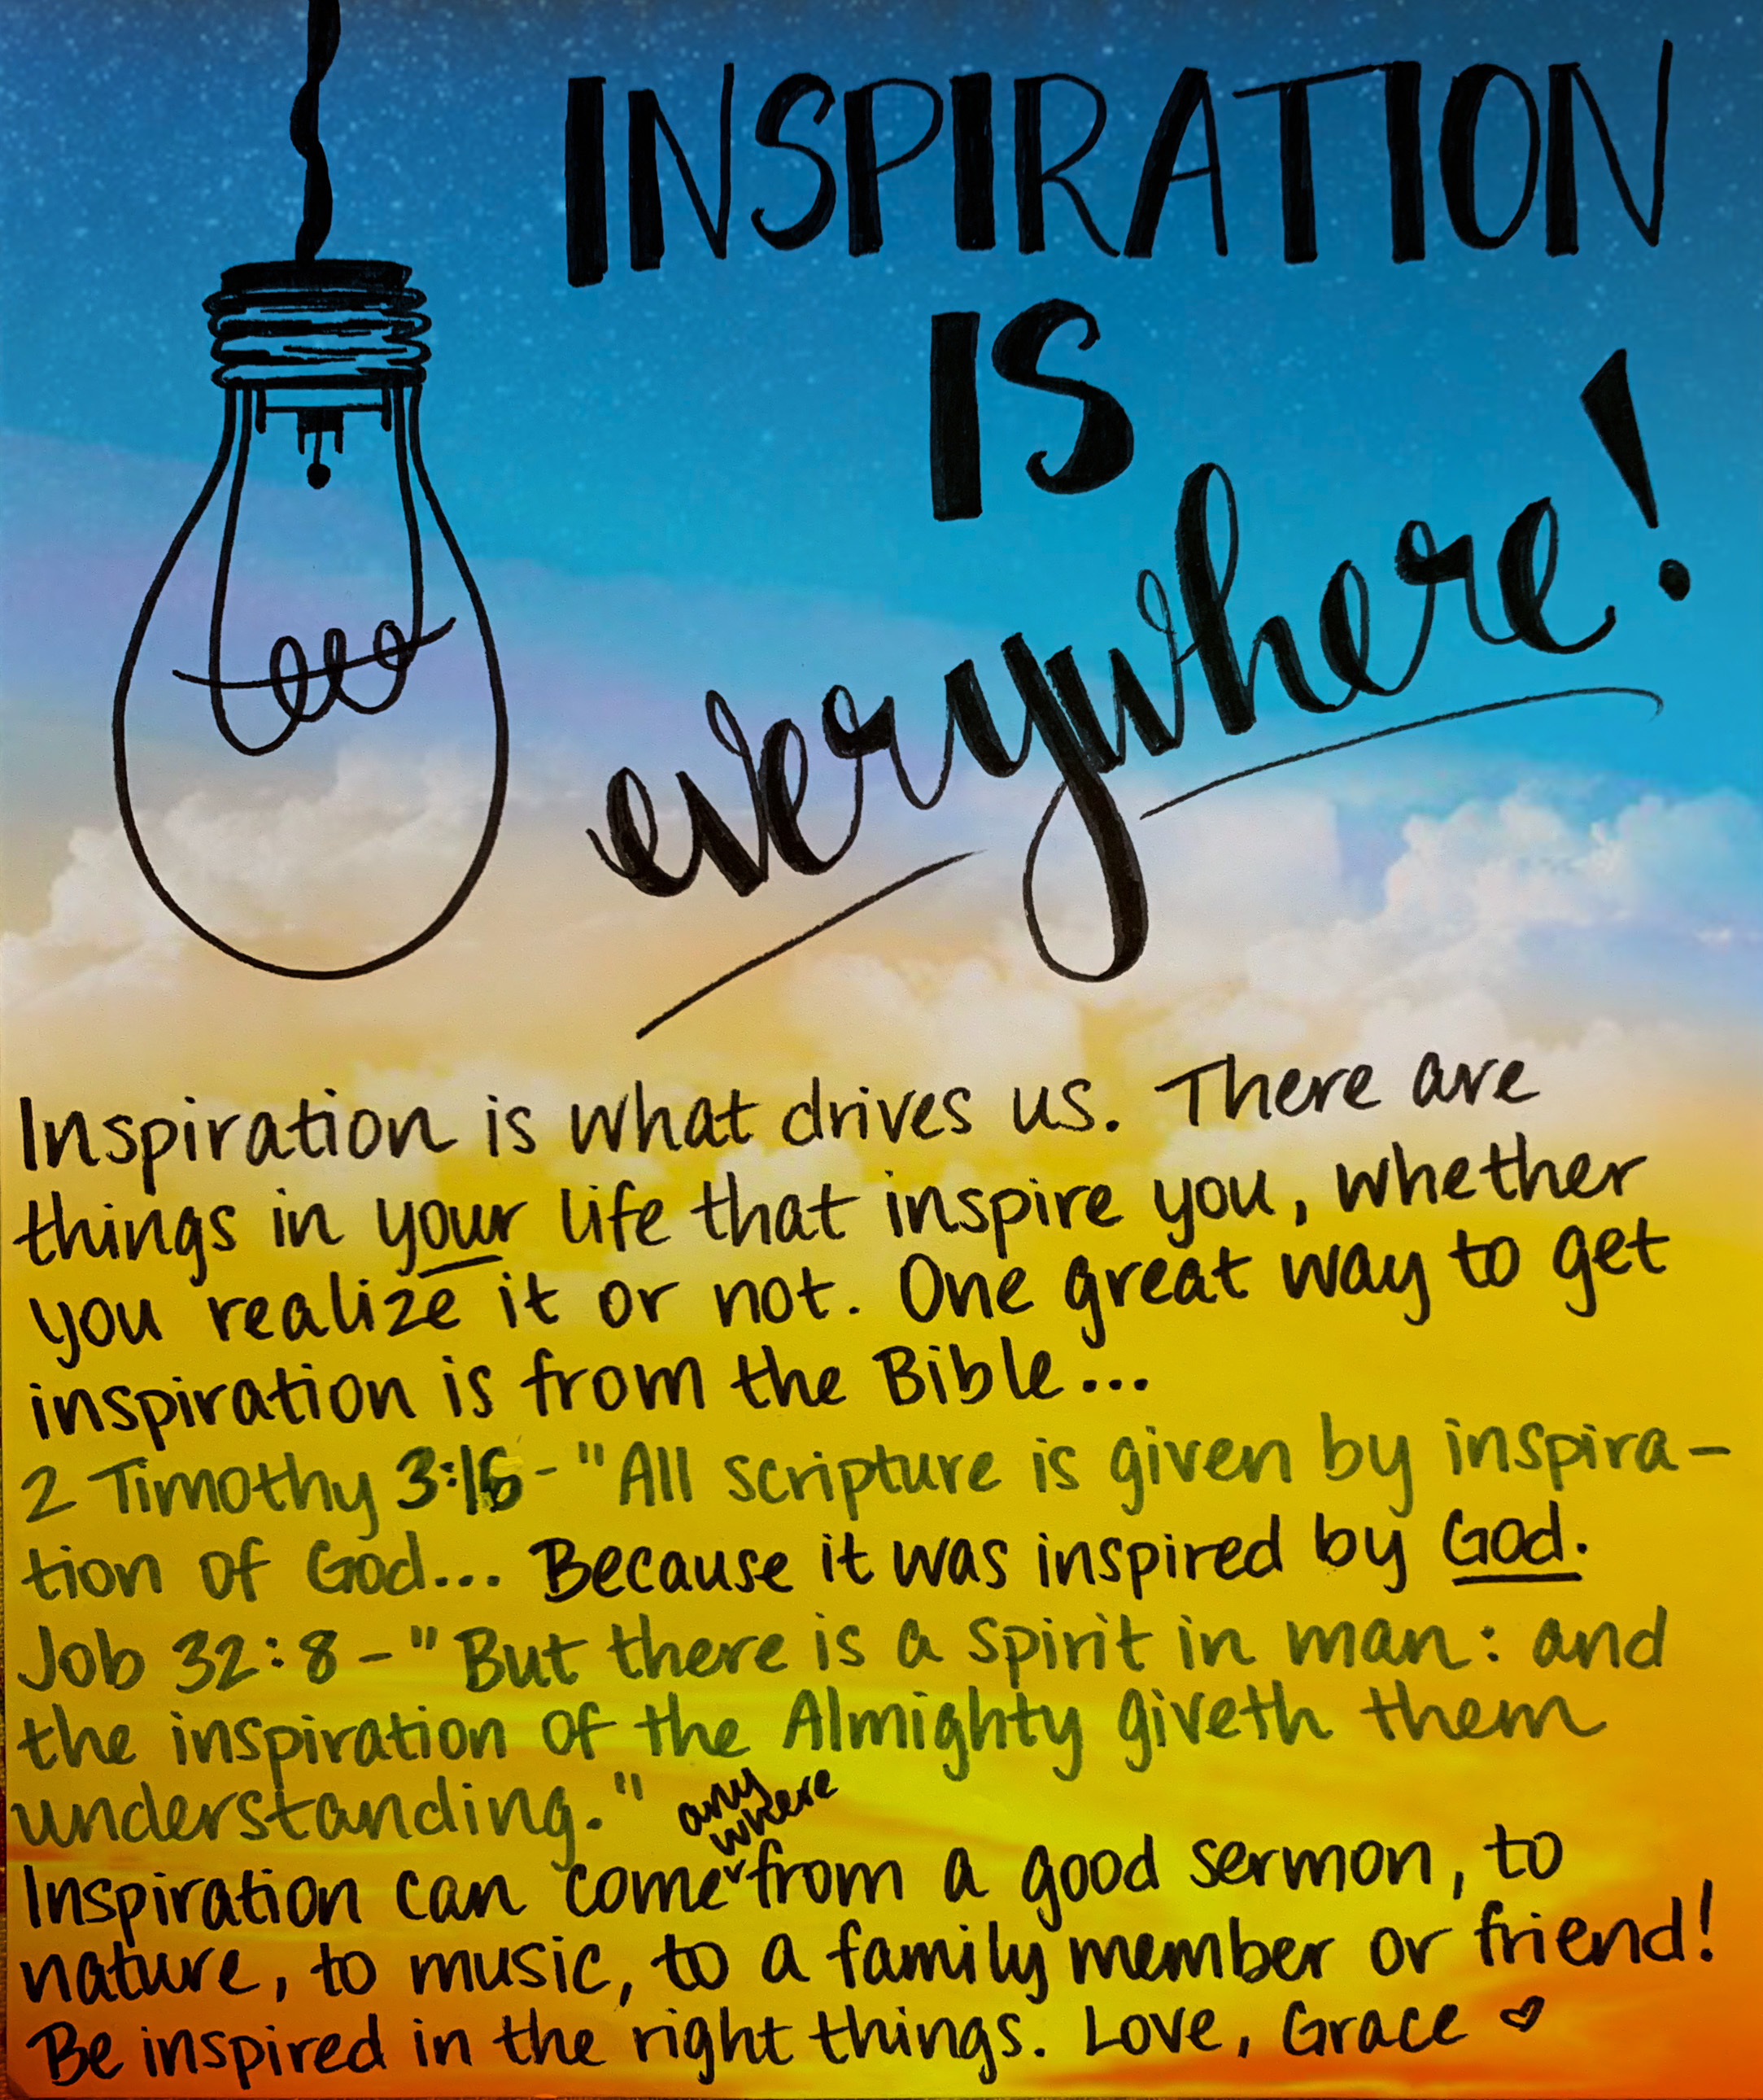 INSPIRATION
IS
everywhere!
Inspiration is what drives us. There are
things in your life that inspire you, whether
you realize it or not. One great way to get
inspiration is from the Bible...
2 Timothy 3:16 - "All scripture is given by inspira-
tion of God... Because it was inspired by God.
Job 32:8 - "But there is a spirit in man: and
the inspiration of the Almighty giveth them
understanding."
Inspiration can come anywhere from a good sermon, to
nature, to music, to a family member or friend!
Be inspired in the right things. Love, Grace ♡